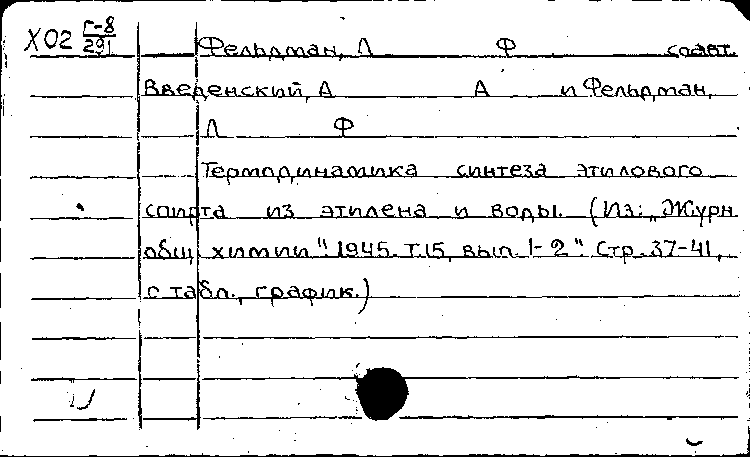 Х02 Г-8/291 Фельдман, Л Ф соавт.
Введенский, А А и Фельдман,
Л Ф
Термодинамика синтеза этилового
спирта из этилена и воды. (Из: „Журн
общ химии". 1945. Т.15, вып. 1-2". Стр. 37-41,
с табл., график.)